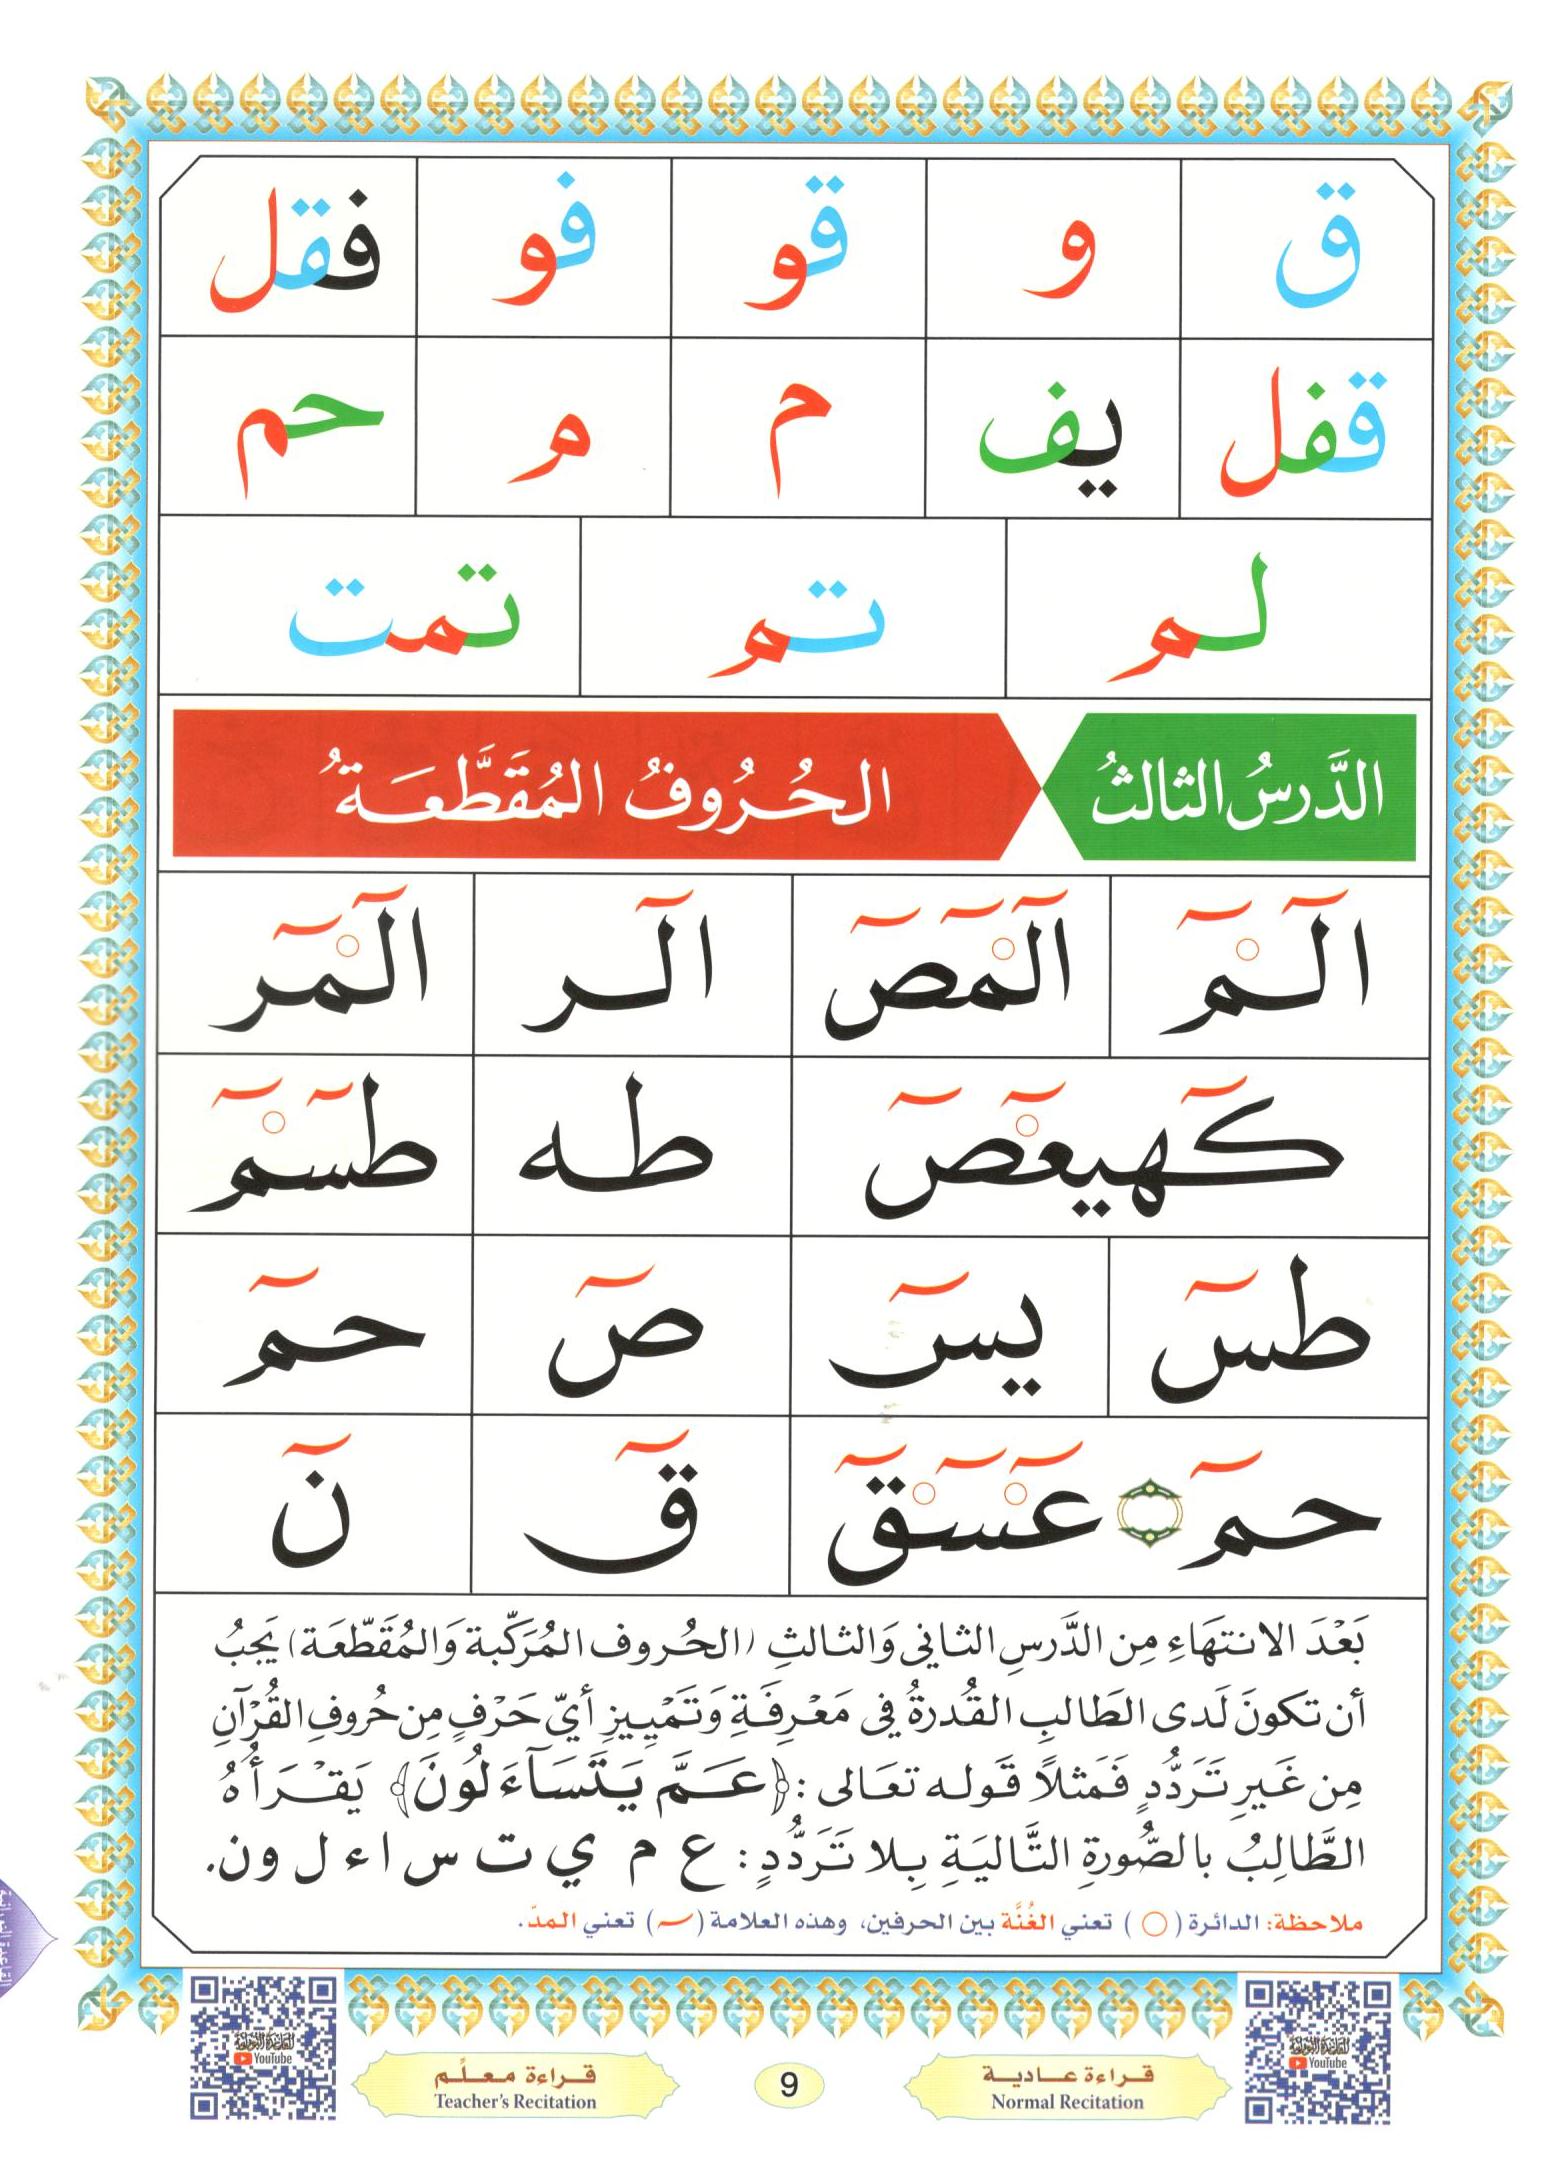 ق و قو فو فقل
قفل يف م م حم
لم تم تمت
الدَّرسُ الثالثُ الحُرُوفُ المُقَطَّعَةُ
الٓمٓ الٓمٓصٓ الٓر الٓمٓر
كٓهيعٓصٓ طه طسٓمٓ
طسٓ يسٓ صٓ حمٓ
حمٓ ۝ عٓسٓقٓ قٓ نٓ
بَعْدَ الانتهَاءِ مِن الدَّرسِ الثاني وَالثالثِ (الحُروف المُرَكّبة وَالمُقَطّعَة) يَجبُ
أن تكونَ لَدى الطَالبِ القُدرةُ في مَعْرِفَةِ وَتَمْيِيزِ أيّ حَرْفٍ مِن حُروفِ القُرْآنِ
مِن غَيرِ تَرَدُّدٍ فَمَثلاً قَوله تعَالى : ﴿عَمَّ يَتَسَآءَلُونَ﴾ يَقْرَأُهُ
الطَّالِبُ بالصُّورةِ التَّاليَةِ بِلا تَرَدُّدٍ : ع م ي ت س ا ء ل و ن.
ملاحظة: الدائرة ( ○ ) تعني الغُنَّة بين الحرفين، وهذه العلامة ( ٓ ) تعني المدّ.
القاعدة النورانية
القاعدة النورانية
YouTube
قراءة معلّم
Teacher's Recitation
9
قراءة عادية
Normal Recitation
القاعدة النورانية
YouTube